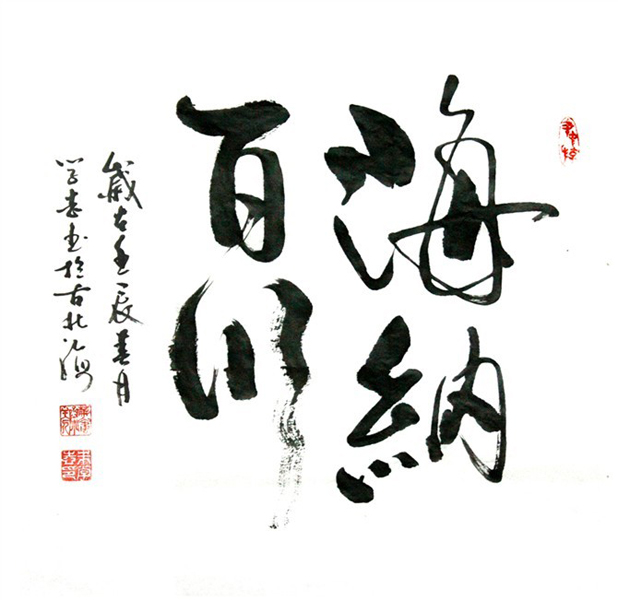 海納
百川
歲在壬辰春月
书於古北海